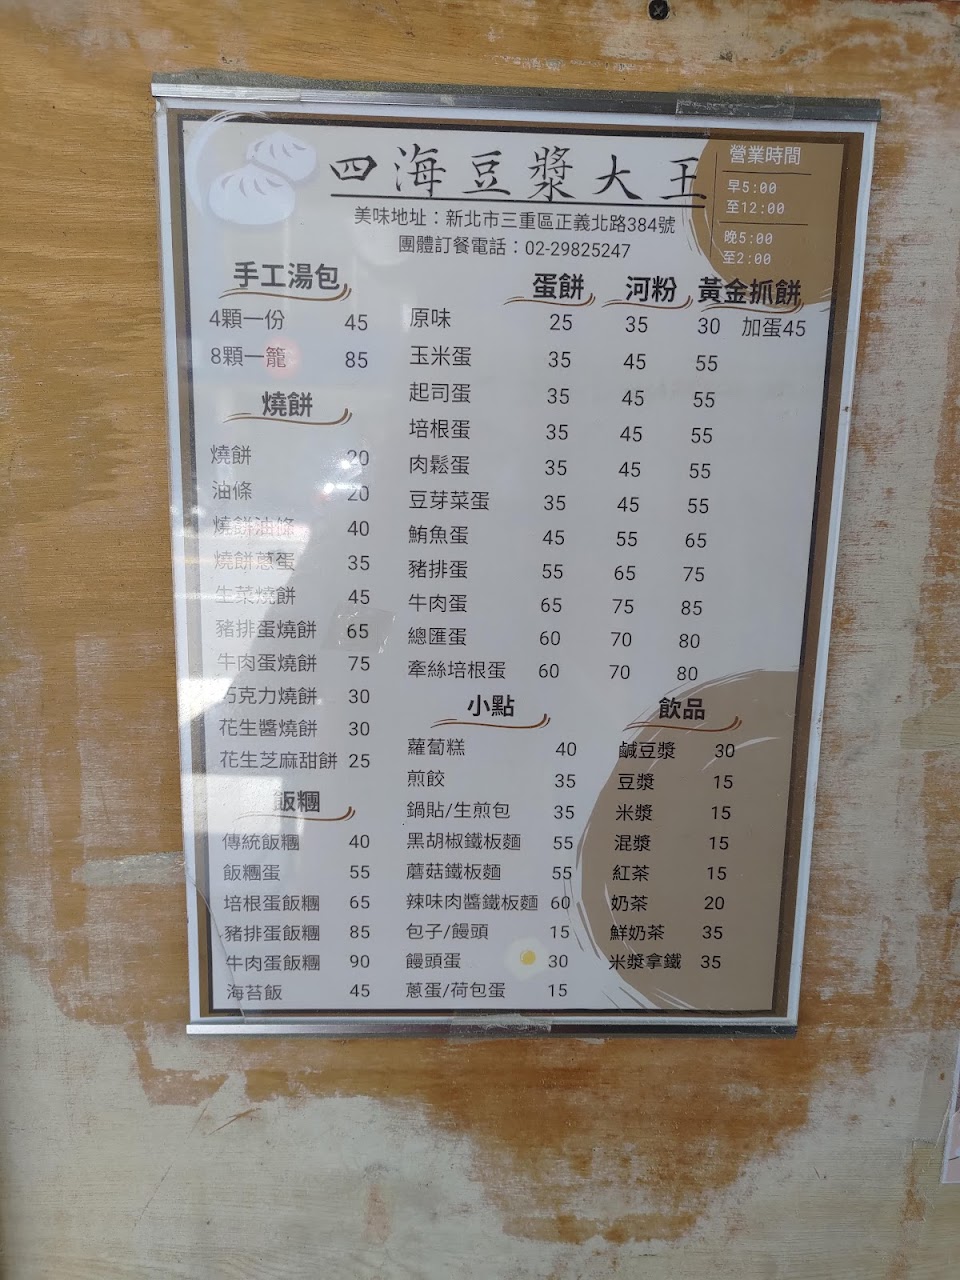 四海豆漿大王
美味地址：新北市三重區正義北路384號
團體訂餐電話：02-29825247
營業時間
早5:00
至12:00
晚5:00
至2:00
手工湯包
4顆一份 45
8顆一籠 85
燒餅
燒餅 20
油條 20
燒餅油條 40
燒餅蔥蛋 35
生菜燒餅 45
豬排蛋燒餅 65
牛肉蛋燒餅 75
巧克力燒餅 30
花生醬燒餅 30
花生芝麻甜餅 25
飯糰
傳統飯糰 40
飯糰蛋 55
培根蛋飯糰 65
豬排蛋飯糰 85
牛肉蛋飯糰 90
海苔飯 45
蛋餅 河粉 黃金抓餅
原味 25 35 30 加蛋45
玉米蛋 35 45 55
起司蛋 35 45 55
培根蛋 35 45 55
肉鬆蛋 35 45 55
豆芽菜蛋 35 45 55
鮪魚蛋 45 55 65
豬排蛋 55 65 75
牛肉蛋 65 75 85
總匯蛋 60 70 80
牽絲培根蛋 60 70 80
小點
蘿蔔糕 40
煎餃 35
鍋貼/生煎包 35
黑胡椒鐵板麵 55
蘑菇鐵板麵 55
辣味肉醬鐵板麵 60
包子/饅頭 15
饅頭蛋 30
蔥蛋/荷包蛋 15
飲品
鹹豆漿 30
豆漿 15
米漿 15
混漿 15
紅茶 15
奶茶 20
鮮奶茶 35
米漿拿鐵 35